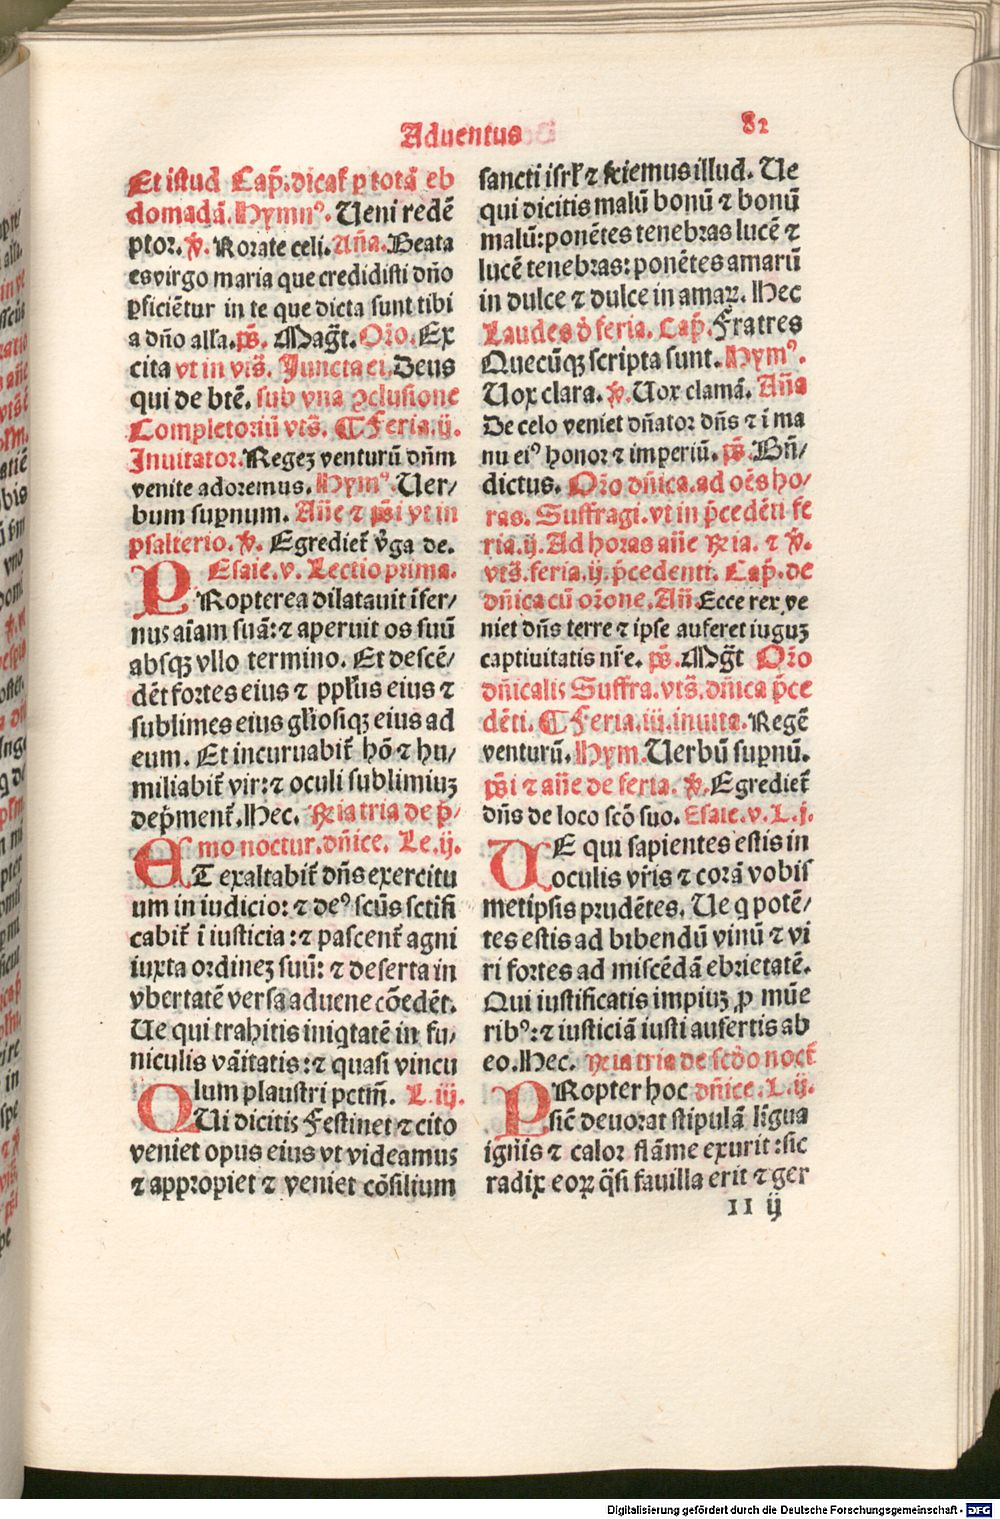 Aduentus
82
Et istud Cap̄. dicat̄ ꝑ totā eb
domadā. Hymnꝰ. Ueni redē
ptor. ℣. Rorate celi. Aña. Beata
es virgo maria que credidisti dño
ꝑficiētur in te que dicta sunt tibi
a dño alľa. p̄s. Mag̃t. Or̄o. Ex
cita vt in vts̄. Juncta ei. Deus
qui de btē. sub vna ꝯclusione
Completoriū vts̄. ¶ Feria. ij.
Inuitator. Regeꝫ venturū dñm
venite adoremus. Hymꝰ. Uer/
bum suꝑnum. Añe ⁊ p̄si vt in
psalterio. ℣. Egrediet̄ v̄ga de.
Esaie. v. Lectio prima.
PRopterea dilatauit īfer/
nus aīam suā: ⁊ aperuit os suū
absqꝫ vllo termino. Et descē/
dēt fortes eius ⁊ pp̄lus eius ⁊
sublimes eius gľiosiqꝫ eius ad
eum. Et incuruabit̄ hō ⁊ hu/
miliabit̄ vir: ⁊ oculi sublimiuꝫ
dep̄ment̄. Hec. R̄ia tria de p̄/
mo noctur. dñice. Le. ij.
ET exaltabit̄ dñs exercitu
um in iudicio: ⁊ deꝰ scūs sctifi
cabit̄ ī iusticia: ⁊ pascent̄ agni
iuxta ordineꝫ suū: ⁊ deserta in
vbertatē versa aduene cōedēt.
Ue qui trahitis iniqtatē in fu/
niculis vāitatis: ⁊ quasi vincu
lum plaustri pctm̄. L. iij.
QUi dicitis Festinet ⁊ cito
veniet opus eius vt videamus
⁊ appropiet ⁊ veniet cōsilium
sancti isrľ ⁊ sciemus illud. Ue
qui dicitis malū bonū ⁊ bonū
malū: ponētes tenebras lucē ⁊
lucē tenebras: ponētes amarū
in dulce ⁊ dulce in amaꝝ. Hec
Laudes d̄ feria. Cap̄. Fratres
Quecūqꝫ scripta sunt. Hymꝰ.
Uox clara. ℣. Uox clamā. Aña
De celo veniet dñator dñs ⁊ ī ma
nu eiꝰ honor ⁊ imperiū. p̄s. Bñ/
dictus. Or̄o dñica. ad oēs ho/
ras. Suffragi. vt in p̄cedēti fe
ria. ij. Ad horas añe R̄ia. ⁊ ℣.
vts̄. feria. ij. p̄cedenti. Cap̄. de
dñica cū or̄one. Añ. Ecce rex ve
niet dñs terre ⁊ ipse auferet iuguꝫ
captiuitatis nr̄e. p̄s. Mg̃t Or̄o
dñicalis Suffra. vts̄. dñica p̄ce
dēti. ¶ Feria. iij. inuita. Regē
venturū. Hym. Uerbū suꝑnū.
p̄si ⁊ añe de feria. ℣. Egrediet̄
dñs de loco scō suo. Esaie. v. L. j.
UE qui sapientes estis in
oculis vr̄is ⁊ corā vobis
metipsis prudētes. Ue q potē/
tes estis ad bibendū vinū ⁊ vi
ri fortes ad miscēdā ebrietatē.
Qui iustificatis impiuꝫ ꝓ mūe
ribꝰ: ⁊ iusticiā iusti aufertis ab
eo. Hec. R̄ia tria de scd̄o noct̄
PRopter hoc dñice. L. ij.
sic̄ deuorat stipulā līgua
ignis ⁊ calor flāme exurit: sic
radix eoꝝ q̄si fauilla erit ⁊ ger
II ij
Digitalisierung gefördert durch die Deutsche Forschungsgemeinschaft - DFG